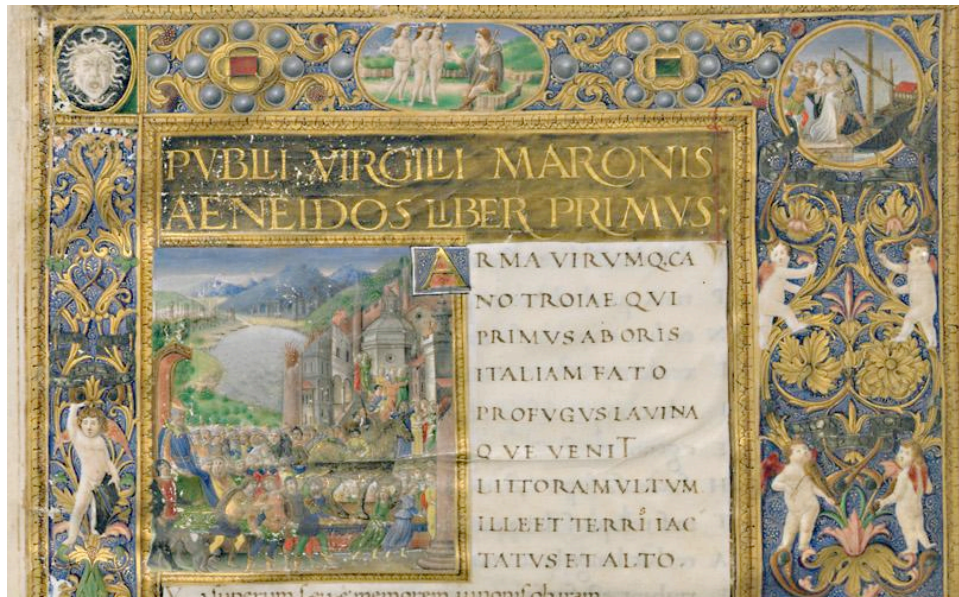 PVBLII VIRGILII MARONIS
AENEIDOS LIBER PRIMVS
A RMA VIRVMQ.CA
NO TROIAE QVI
PRIMVS AB ORIS
ITALIAM FATO
PROFVGVS LAVINA
QVE VENIT
LITTORA MVLTVM
ILLE ET TERRIS IAC
TATVS ET ALTO